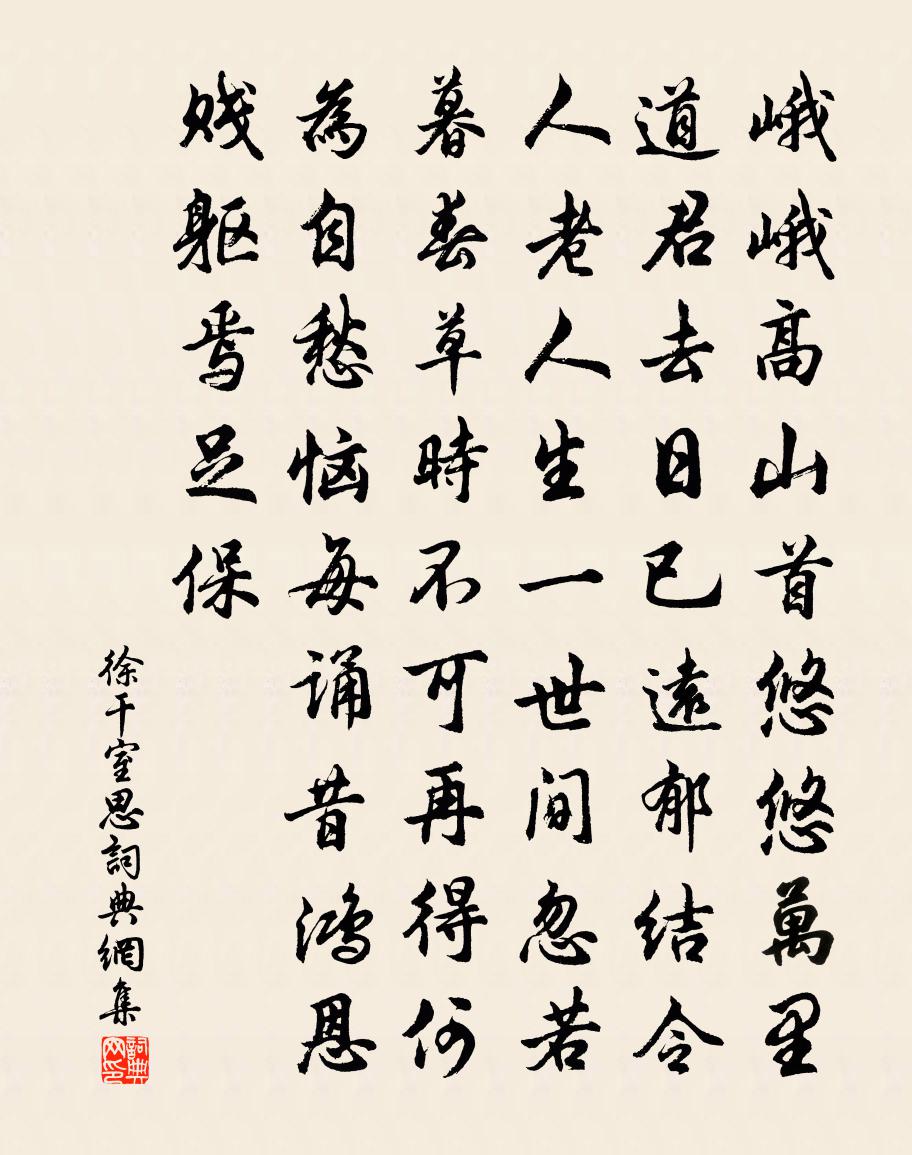 峨峨高山首悠悠萬里
道君去日已遠郁结令
人老人生一世间忽若
暮春草時不可再得何
為自愁恼每诵昔鸿恩
贱躯焉足保
徐干室思詞典網集
詞典网印